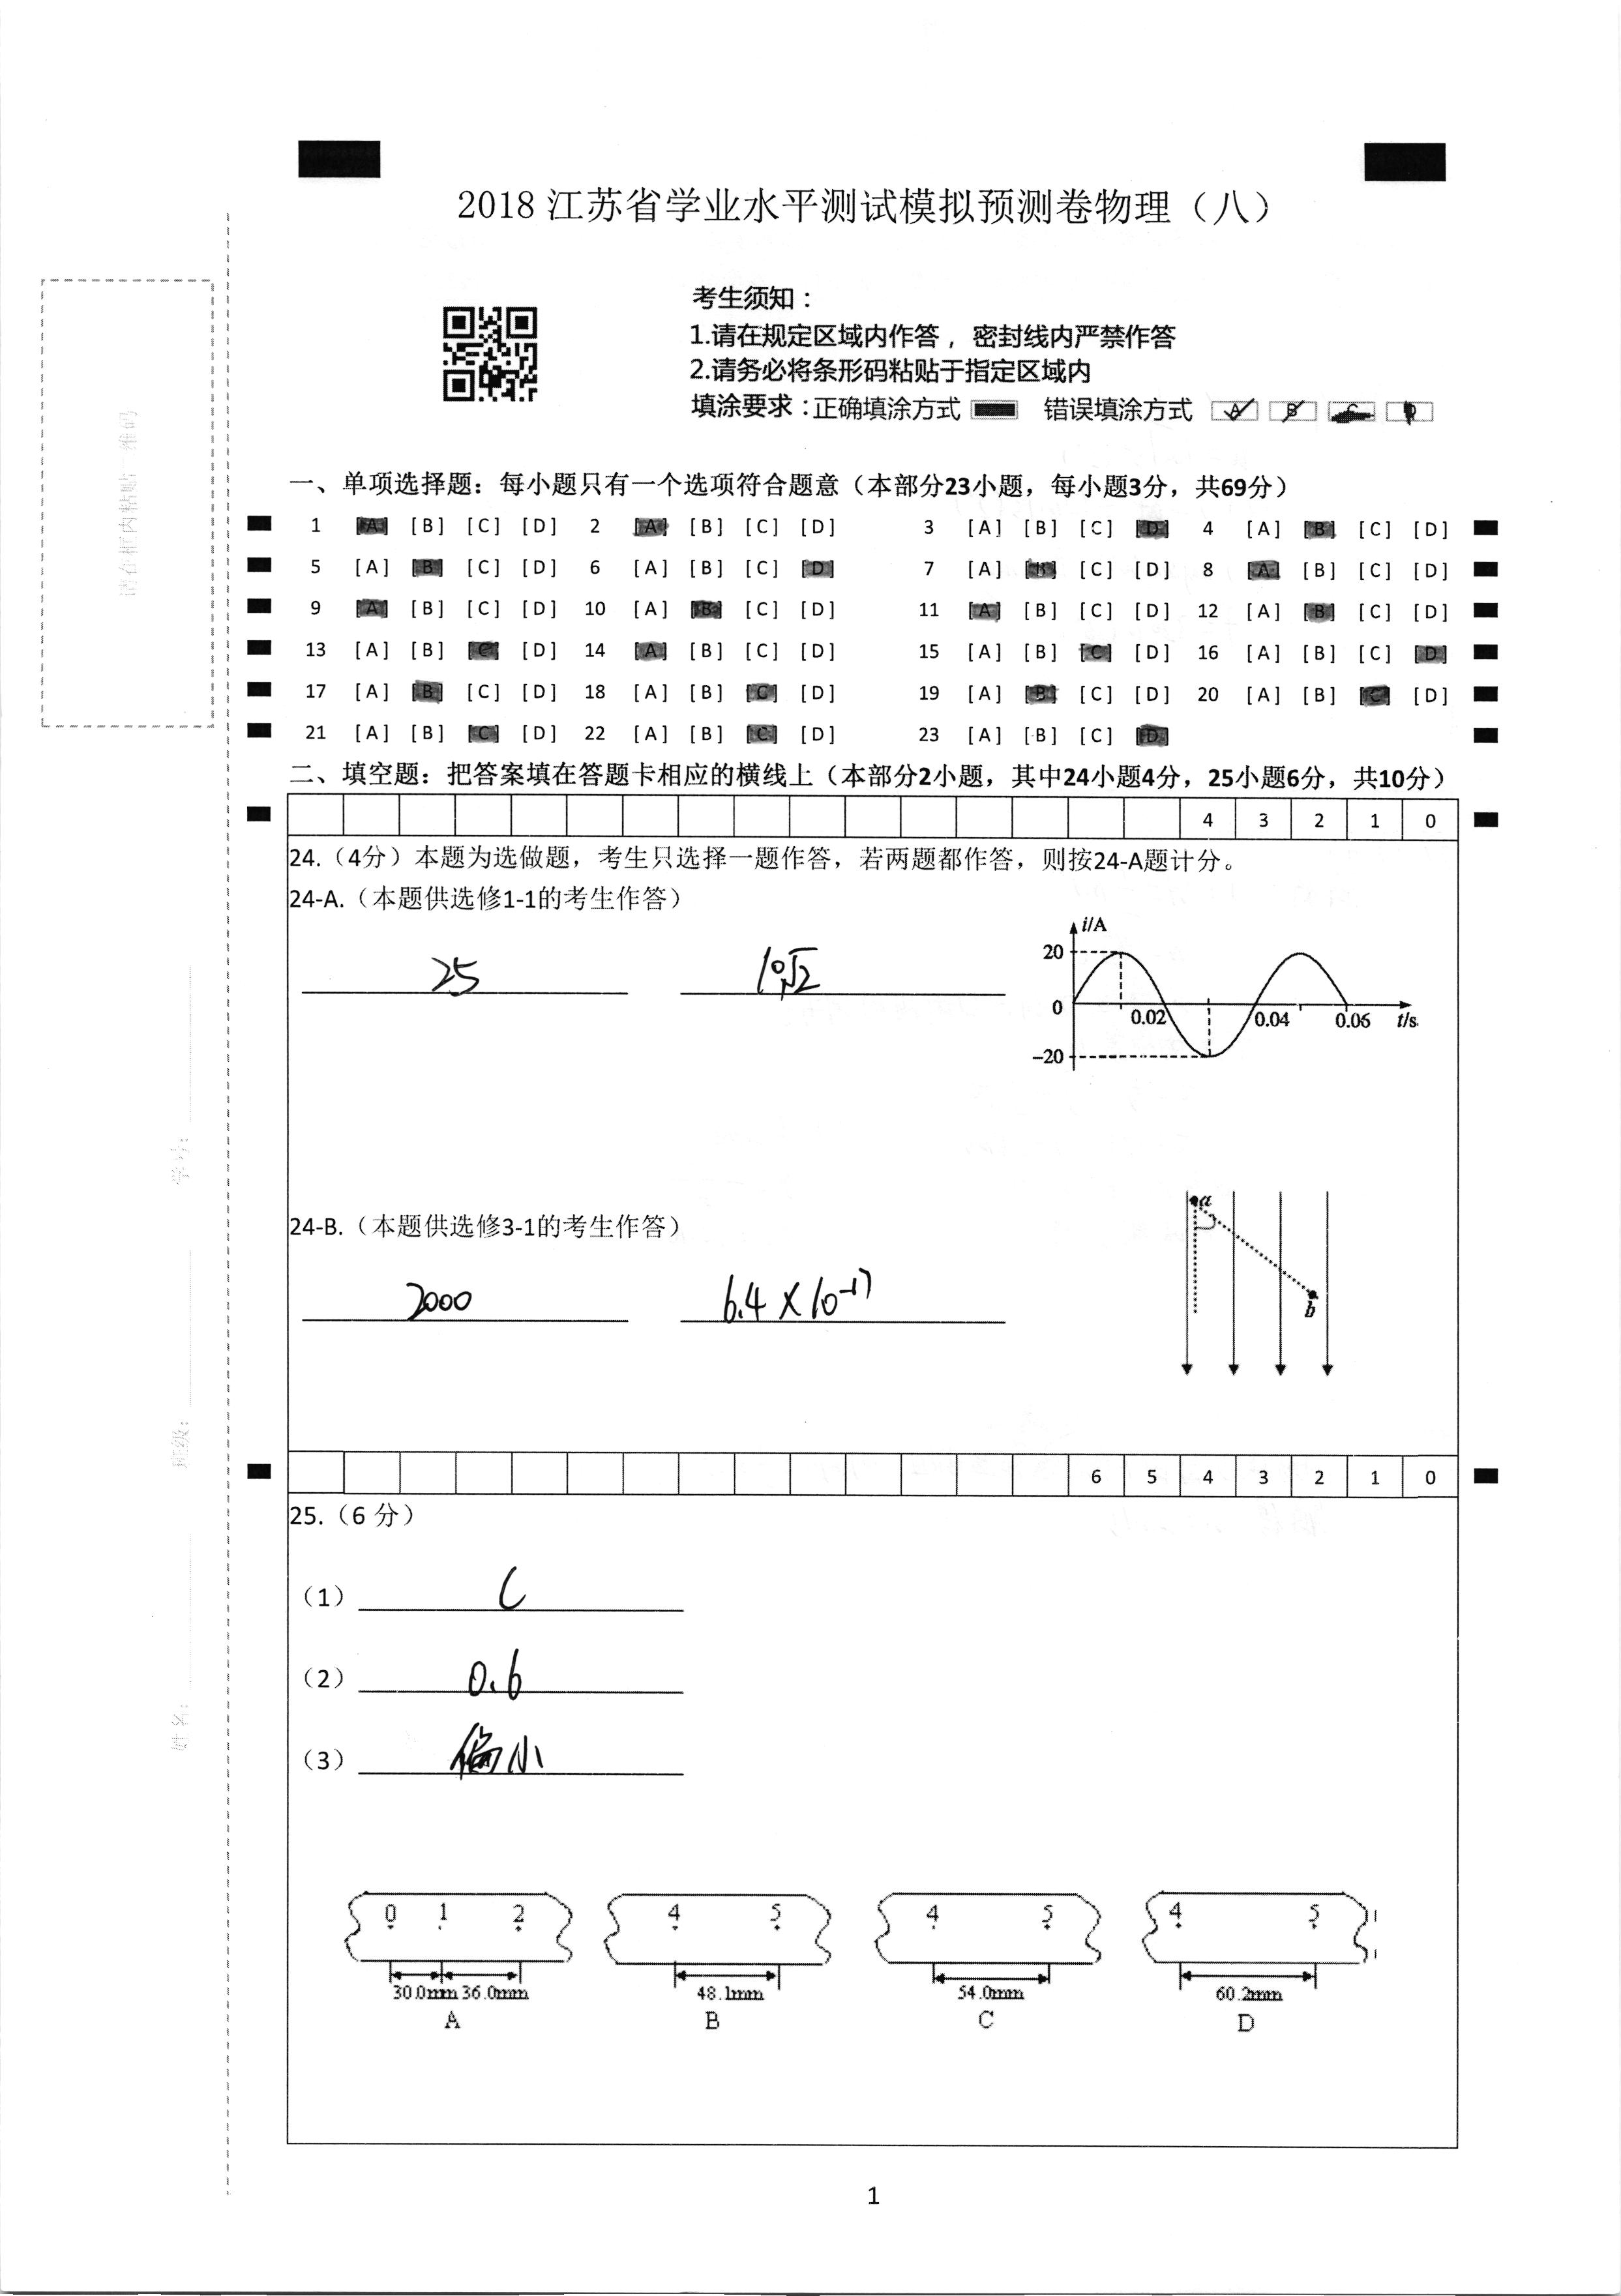 2018 江苏省学业水平测试模拟预测卷物理（八）
考生须知：
1.请在规定区域内作答，密封线内严禁作答
2.请务必将条形码粘贴于指定区域内
填涂要求：正确填涂方式 错误填涂方式 A B C D
一、单项选择题：每小题只有一个选项符合题意（本部分23小题，每小题3分，共69分）
1 [A] [B] [C] [D] 2 [A] [B] [C] [D] 3 [A] [B] [C] [D] 4 [A] [B] [C] [D]
5 [A] [B] [C] [D] 6 [A] [B] [C] [D] 7 [A] [B] [C] [D] 8 [A] [B] [C] [D]
9 [A] [B] [C] [D] 10 [A] [B] [C] [D] 11 [A] [B] [C] [D] 12 [A] [B] [C] [D]
13 [A] [B] [C] [D] 14 [A] [B] [C] [D] 15 [A] [B] [C] [D] 16 [A] [B] [C] [D]
17 [A] [B] [C] [D] 18 [A] [B] [C] [D] 19 [A] [B] [C] [D] 20 [A] [B] [C] [D]
21 [A] [B] [C] [D] 22 [A] [B] [C] [D] 23 [A] [B] [C] [D]
二、填空题：把答案填在答题卡相应的横线上（本部分2小题，其中24小题4分，25小题6分，共10分）
4 3 2 1 0
24.（4分）本题为选做题，考生只选择一题作答，若两题都作答，则按24-A题计分。
24-A.（本题供选修1-1的考生作答）
25 10√2
i/A
20
0 0.02 0.04 0.06 t/s
-20
24-B.（本题供选修3-1的考生作答）
2000 6.4×10⁻¹⁷
a
b
6 5 4 3 2 1 0
25.（6 分）
（1） C
（2） 0.6
（3） 偏小
0 1 2 4 5 4 5 4 5
30.0mm 36.0mm 48.1mm 54.0mm 60.2mm
A B C D
1
请在框内粘贴
学号：
班级：
姓名：